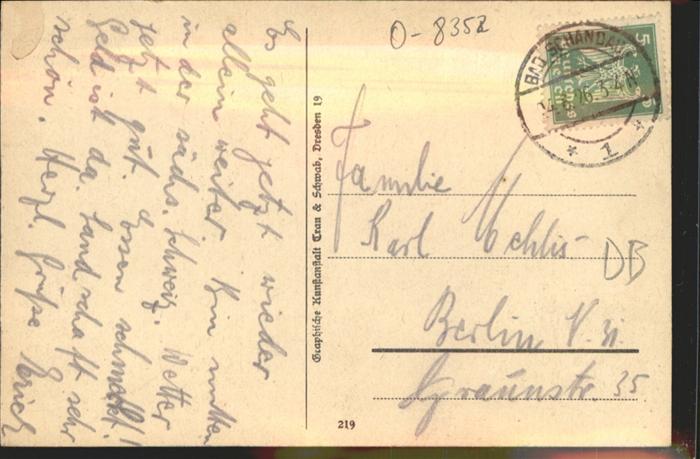 Es geht jetzt wieder
allein weiter. Bin mitten
in der sächs. Schweiz. Wetter
jetzt gut. Essen schmeckt!
Geld ist da, Landschaft sehr
schön. Herzl. Grüße Erich
O-8352
BAD SCHANDAU
14.8.26.3-4N
* 1 *
5
Familie
Karl
Berlin N. 31
Graunstr. 35
DB
Graphische Kunstanstalt Trau & Schwab, Dresden 19
219